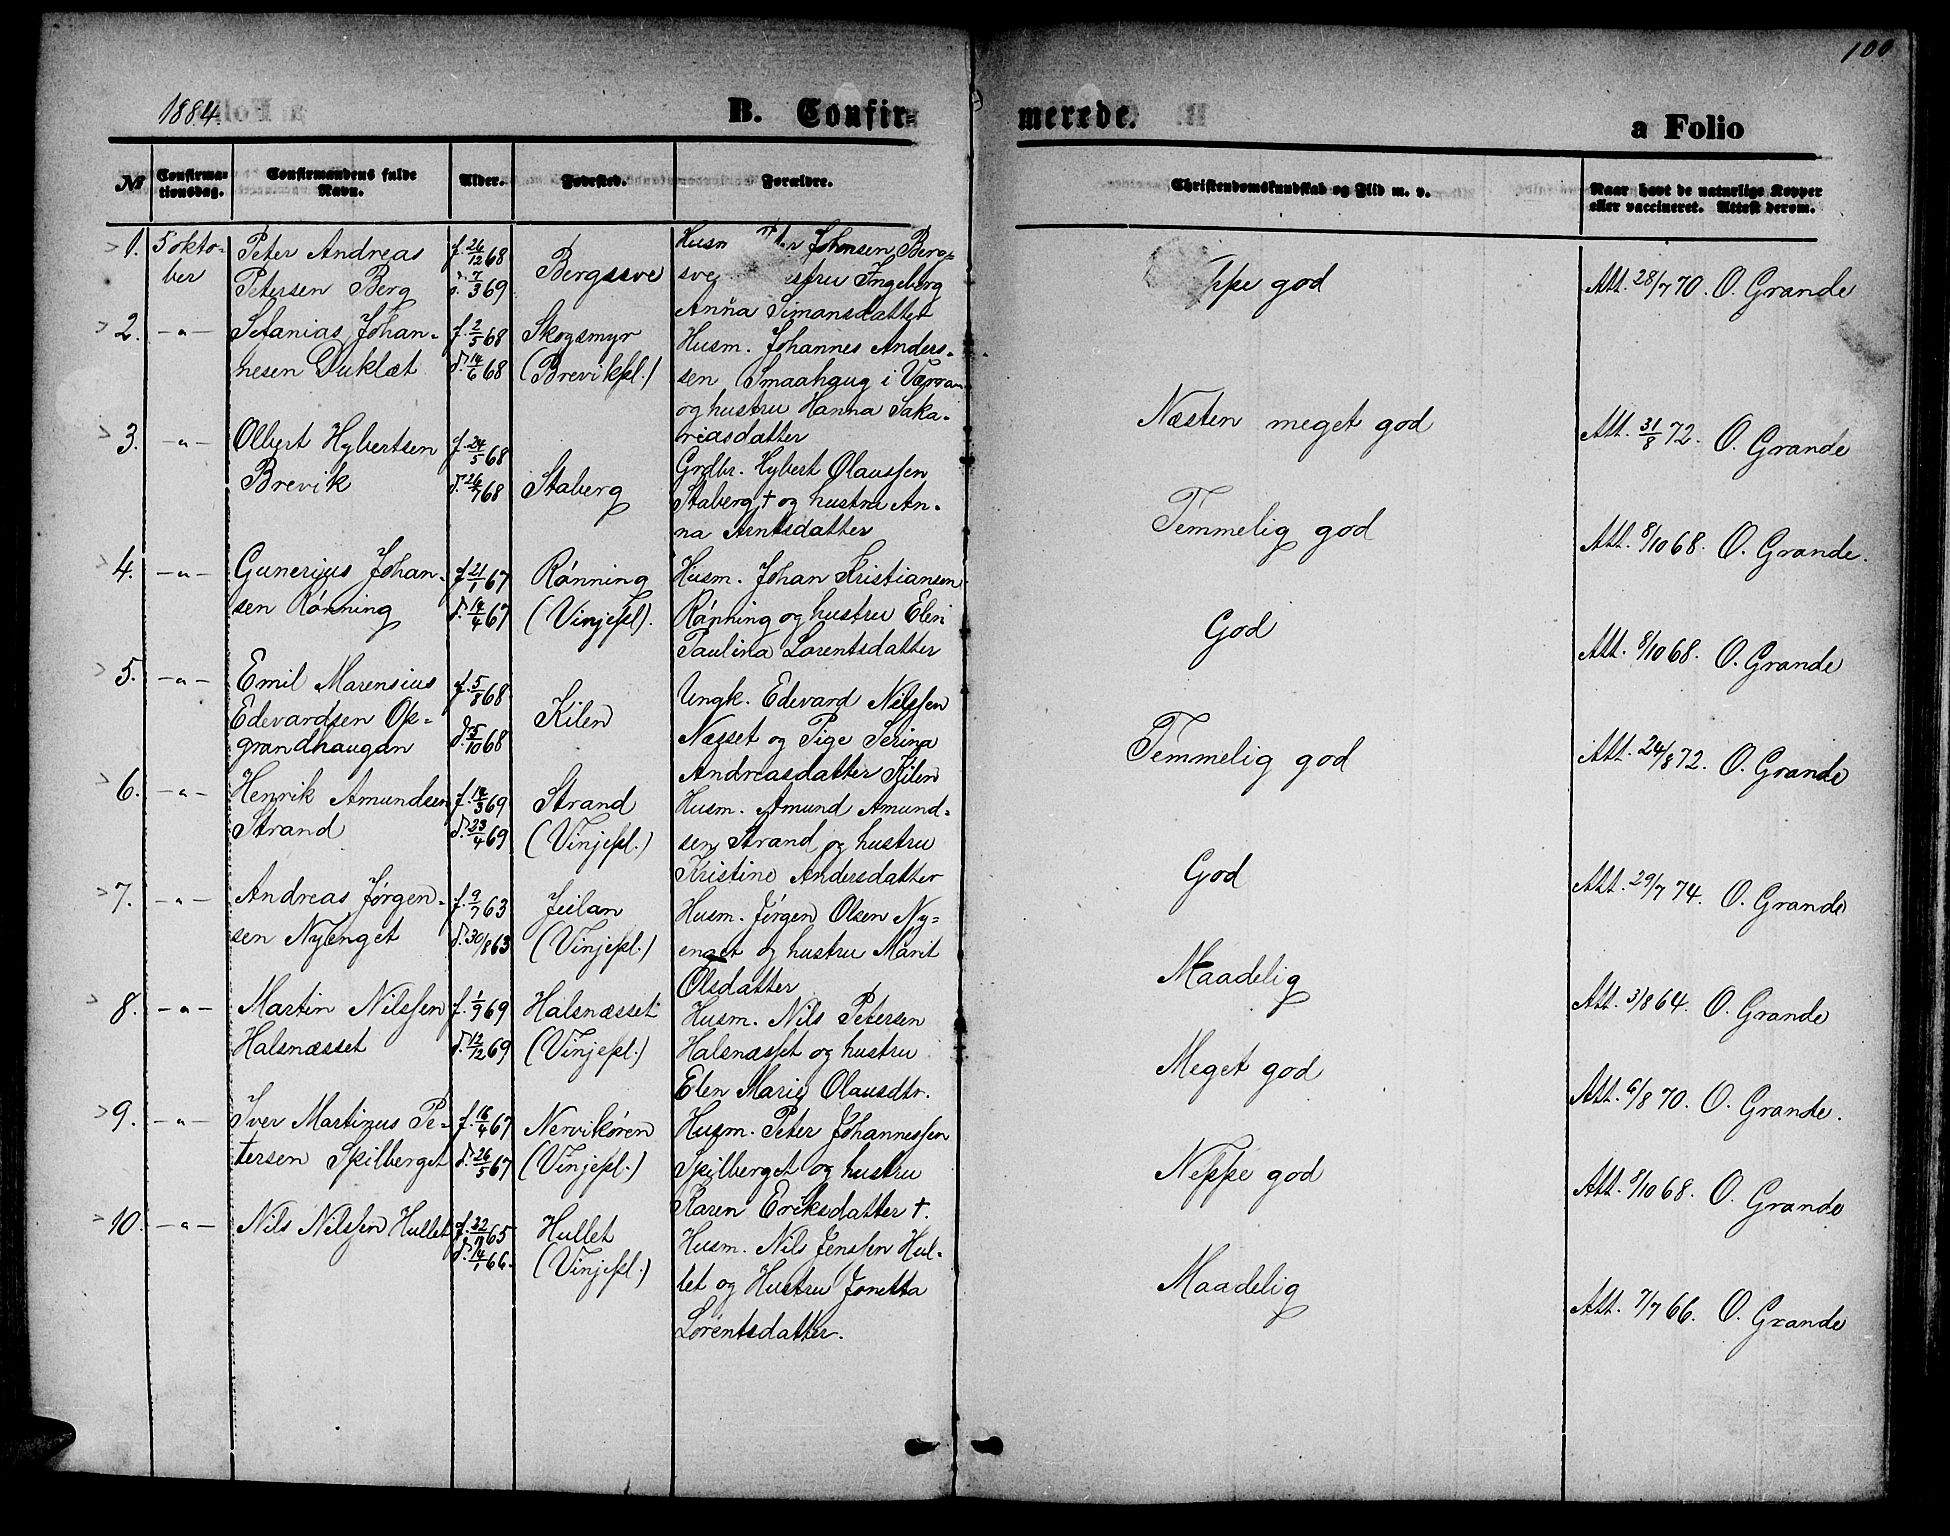 100
1884.
B. Confirmerede.
a Folio
№
Confirmationsdag.
Confirmandens fulde Navn.
Alder.
Fødested.
Forældre.
Christendomskundskab og Flid m. v.
Naar havt de naturlige Kopper eller vaccineret. Attest derom.
1.
5 okto-
ber
Peter Andreas
Petersen Berg
f. 26/12 68
d. 7/3 69
Bergssve
Husm Johnsen Berg-
sve Ingeberg
Anna Simonsdatter
ppe god
Att. 28/7 70. O. Grande
2.
-"-
Sefanias Johan-
nesen Duklæt
f. 2/5 68
d. 14/6 68
Skogsmyr
(Brevikpl.)
Husm. Johannes Anders-
sen Smaahaug i Væran
og hustru Hanna Saka-
riasdatter
Næsten meget god
Att. 31/8 72. O. Grande
3.
-"-
Olbert Hybertsen
Brevik
f. 24/5 68
d. 26/7 68
Staberg
Grdbr. Hybert Olaussen
Staberg + og hustru An-
na Arntsdatter
Temmelig god
Att. 8/10 68. O. Grande.
4.
-"-
Gunerius Johan-
sen Rønning
f. 21/1 67
d. 14/4 67
Rønning
(Vinjepl).
Husm. Johan Kristiansen
Rønning og hustru Elen
Paulina Lorentsdatter
God
Att. 8/10 68. O. Grande
5.
-"-
Emil Marensius
Edevardsen Op-
grandhaugan
f. 5/8 68
d. 5/10 68
Kilen
Ungk. Edevard Nilssen
Næsset og Pige Serina
Andreasdatter Kilen
Temmelig god
Att. 24/8 72. O. Grande
6.
-"-
Henrik Amundsen
Strand
f. 14/3 69
d. 23/4 69
Strand
(Vinjepl.)
Husm. Amund Amund-
sen Strand og hustru
Kristine Andersdatter
God
Att. 29/7 74. O. Grande
7.
-"-
Andreas Jørgen-
sen Nyenget
f. 9/7 63
d. 30/8 63
Jeilan
(Vinjepl.)
Husm. Jørgen Olsen Ny-
enget og hustru Marit
Olsdatter
Maadelig
Att. 3/8 64. O. Grande
8.
-"-
Martin Nilssen
Halsnæsset
f. 1/9 69
d. 12/12 69
Halsnæsset
(Vinjepl.)
Husm. Nils Petersen
Halsnæsset og hustru
Elen Marie Olausdtr.
Meget god
Att. 6/8 70. O. Grande.
9.
-"-
Iver Martinus Pe-
tersen Spilberget
f. 16/4 67
d. 26/5 67
Nervikøren
(Vinjepl.)
Husm. Peter Johannessen
Spilberget og hustru
Karen Eriksdatter +.
Neppe god
Att. 8/10 68. O. Grande
10.
-"-
Nils Nilssen Hullet
d. 14/1 66.
Hullet
(Vinjepl.)
Husm. Nils Jenssen Hul-
let og Hustru Jonetta
Lorentsdatter.
Maadelig
Att. 7/7 66. O. Grande